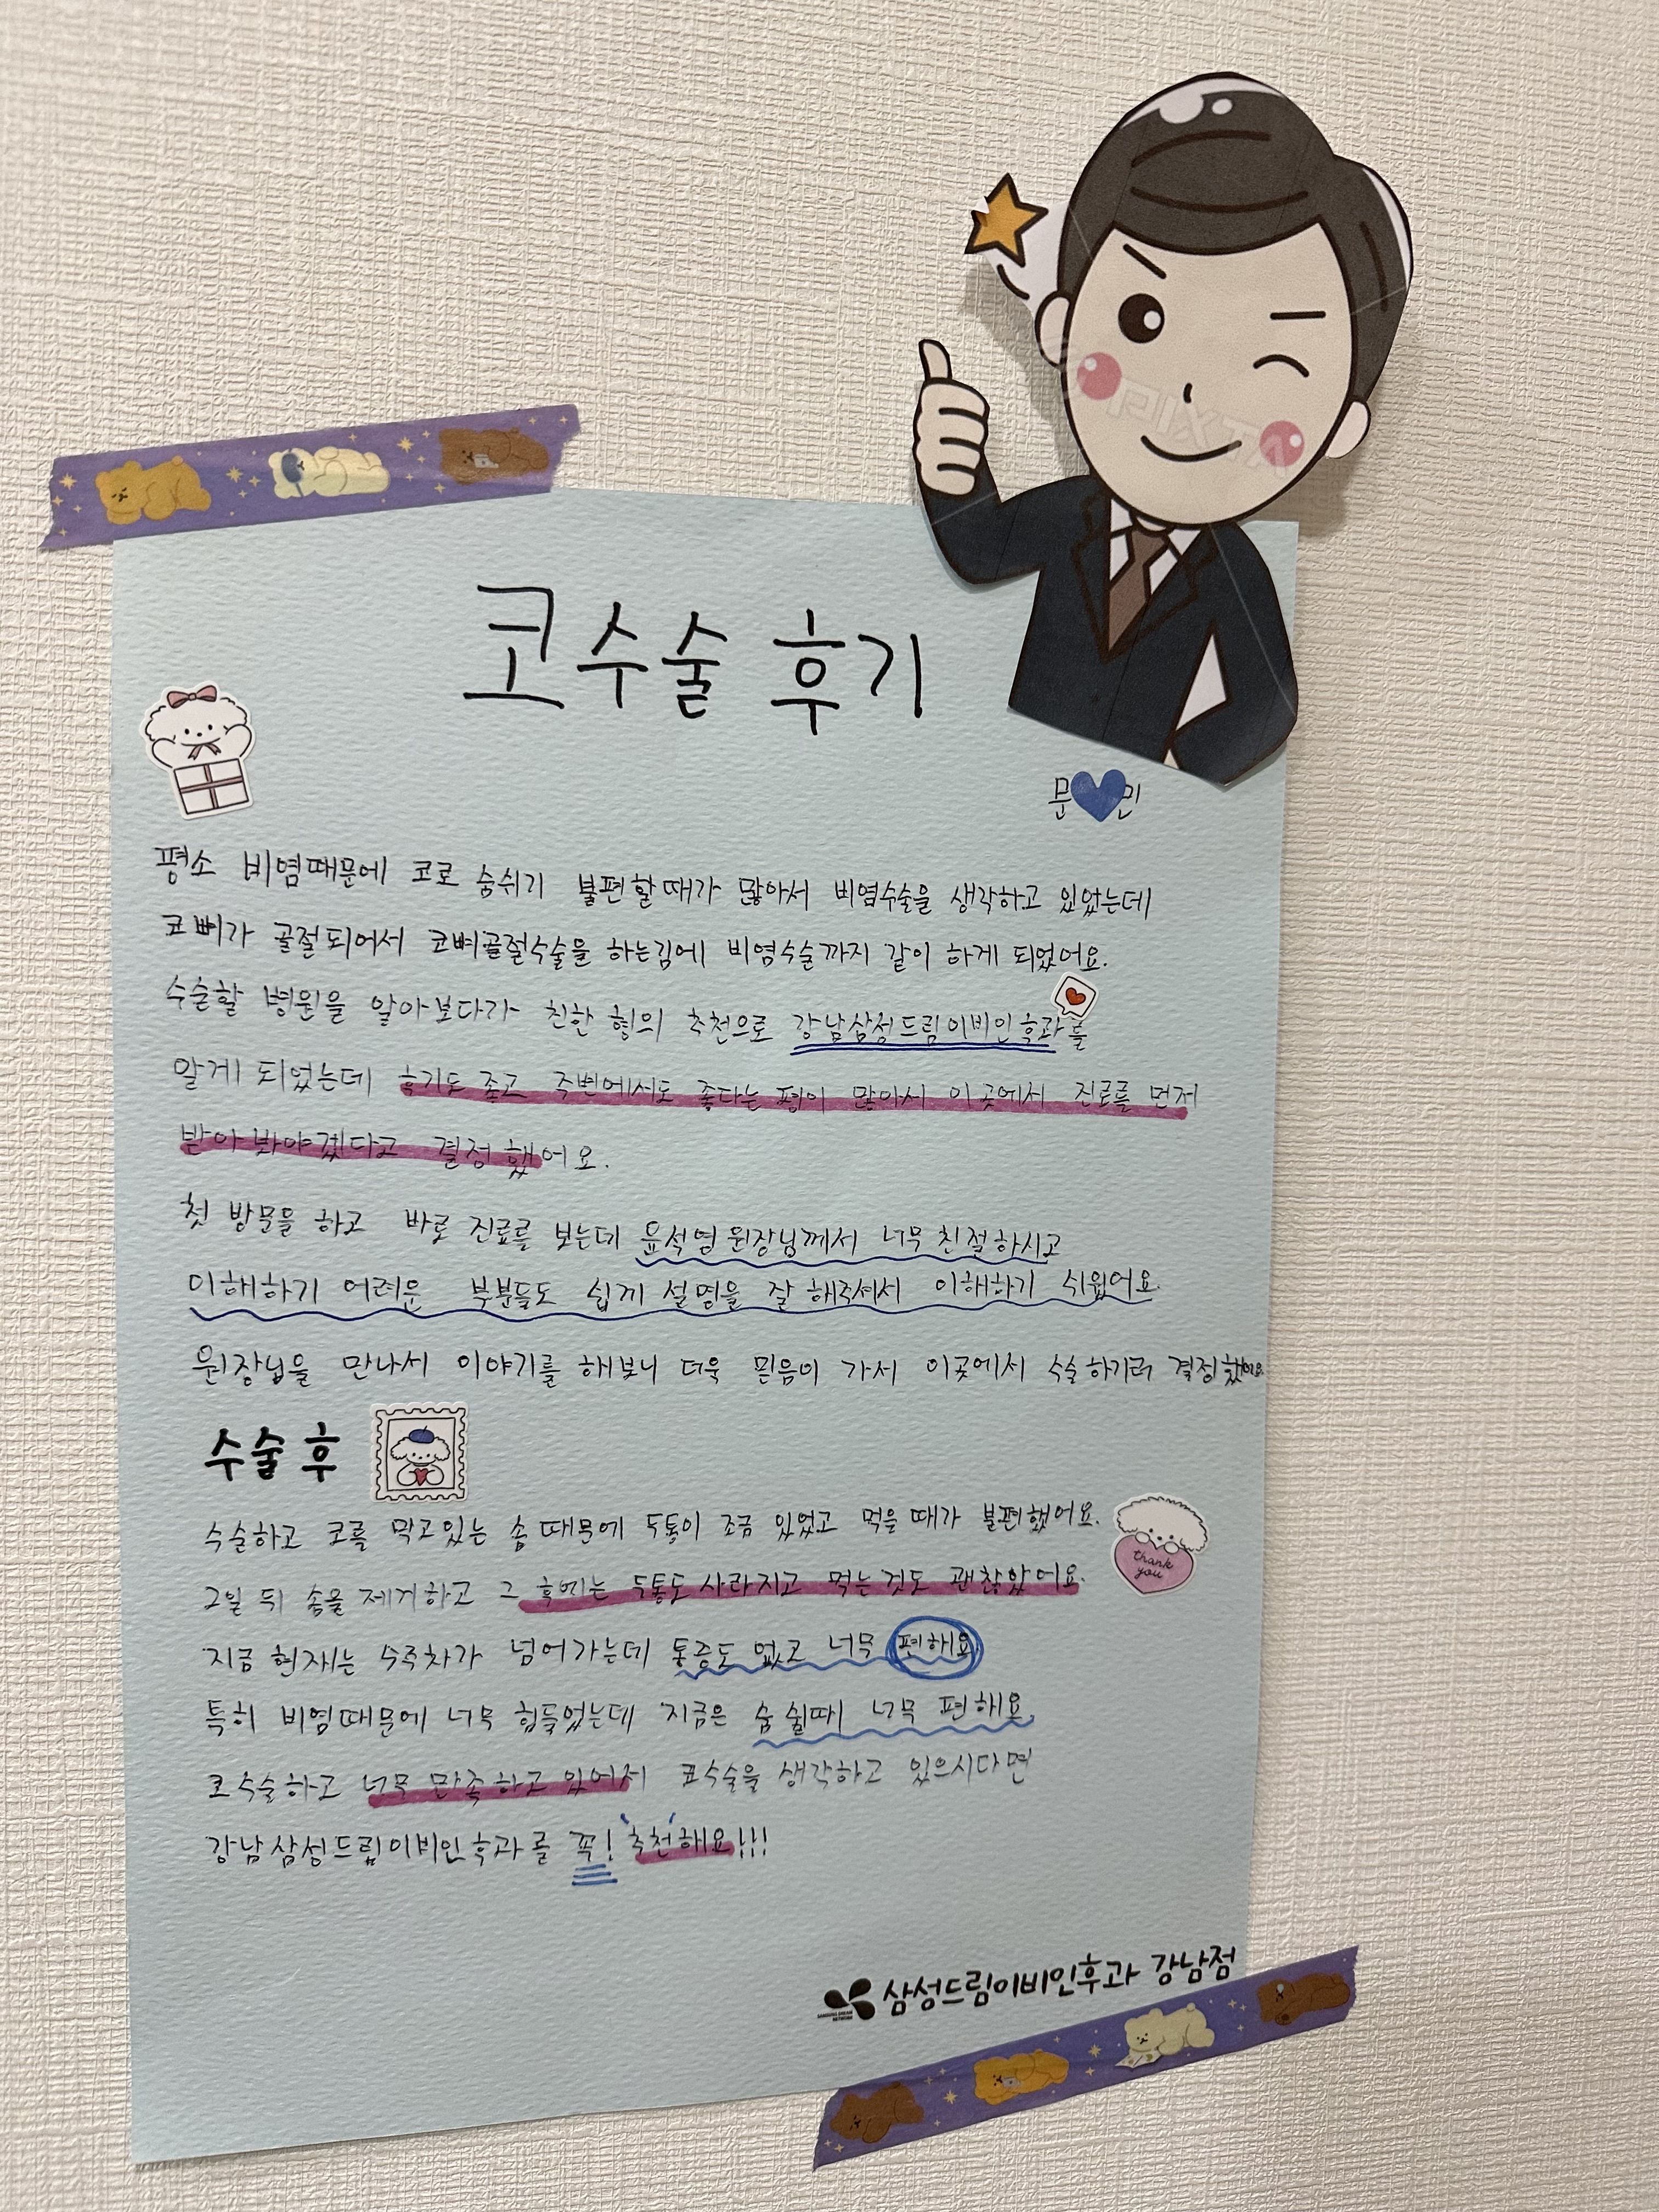 코수술 후기
문💙민
평소 비염때문에 코로 숨쉬기 불편할때가 많아서 비염수술을 생각하고 있었는데
코뼈가 골절되어서 코뼈골절수술을 하는김에 비염수술까지 같이 하게 되었어요.
수술할 병원을 알아보다가 친한 형의 추천으로 강남삼성드림이비인후과를
알게 되었는데 후기도 좋고 주변에서도 좋다는 평이 많아서 이곳에서 진료를 먼저
받아봐야겠다고 결정했어요.
첫 방문을 하고 바로 진료를 보는데 윤석영원장님께서 너무 친절하시고
이해하기 어려운 부분들도 쉽게 설명을 잘 해주셔서 이해하기 쉬웠어요.
원장님을 만나서 이야기를 해보니 더욱 믿음이 가서 이곳에서 수술하기로 결정했어요.
수술 후
수술하고 코를 막고있는 솜 때문에 두통이 조금 있었고 먹을 때가 불편했어요.
thank
you
2일 뒤 솜을 제거하고 그 후에는 두통도 사라지고 먹는것도 괜찮았어요.
지금 현재는 4주차가 넘어가는데 통증도 없고 너무 편해요.
특히 비염때문에 너무 힘들었는데 지금은 숨쉴때 너무 편해요
코수술하고 너무 만족하고 있어서 코수술을 생각하고 있으시다면
강남삼성드림이비인후과를 꼭! 추천해요!!!
삼성드림이비인후과 강남점
PIXTA